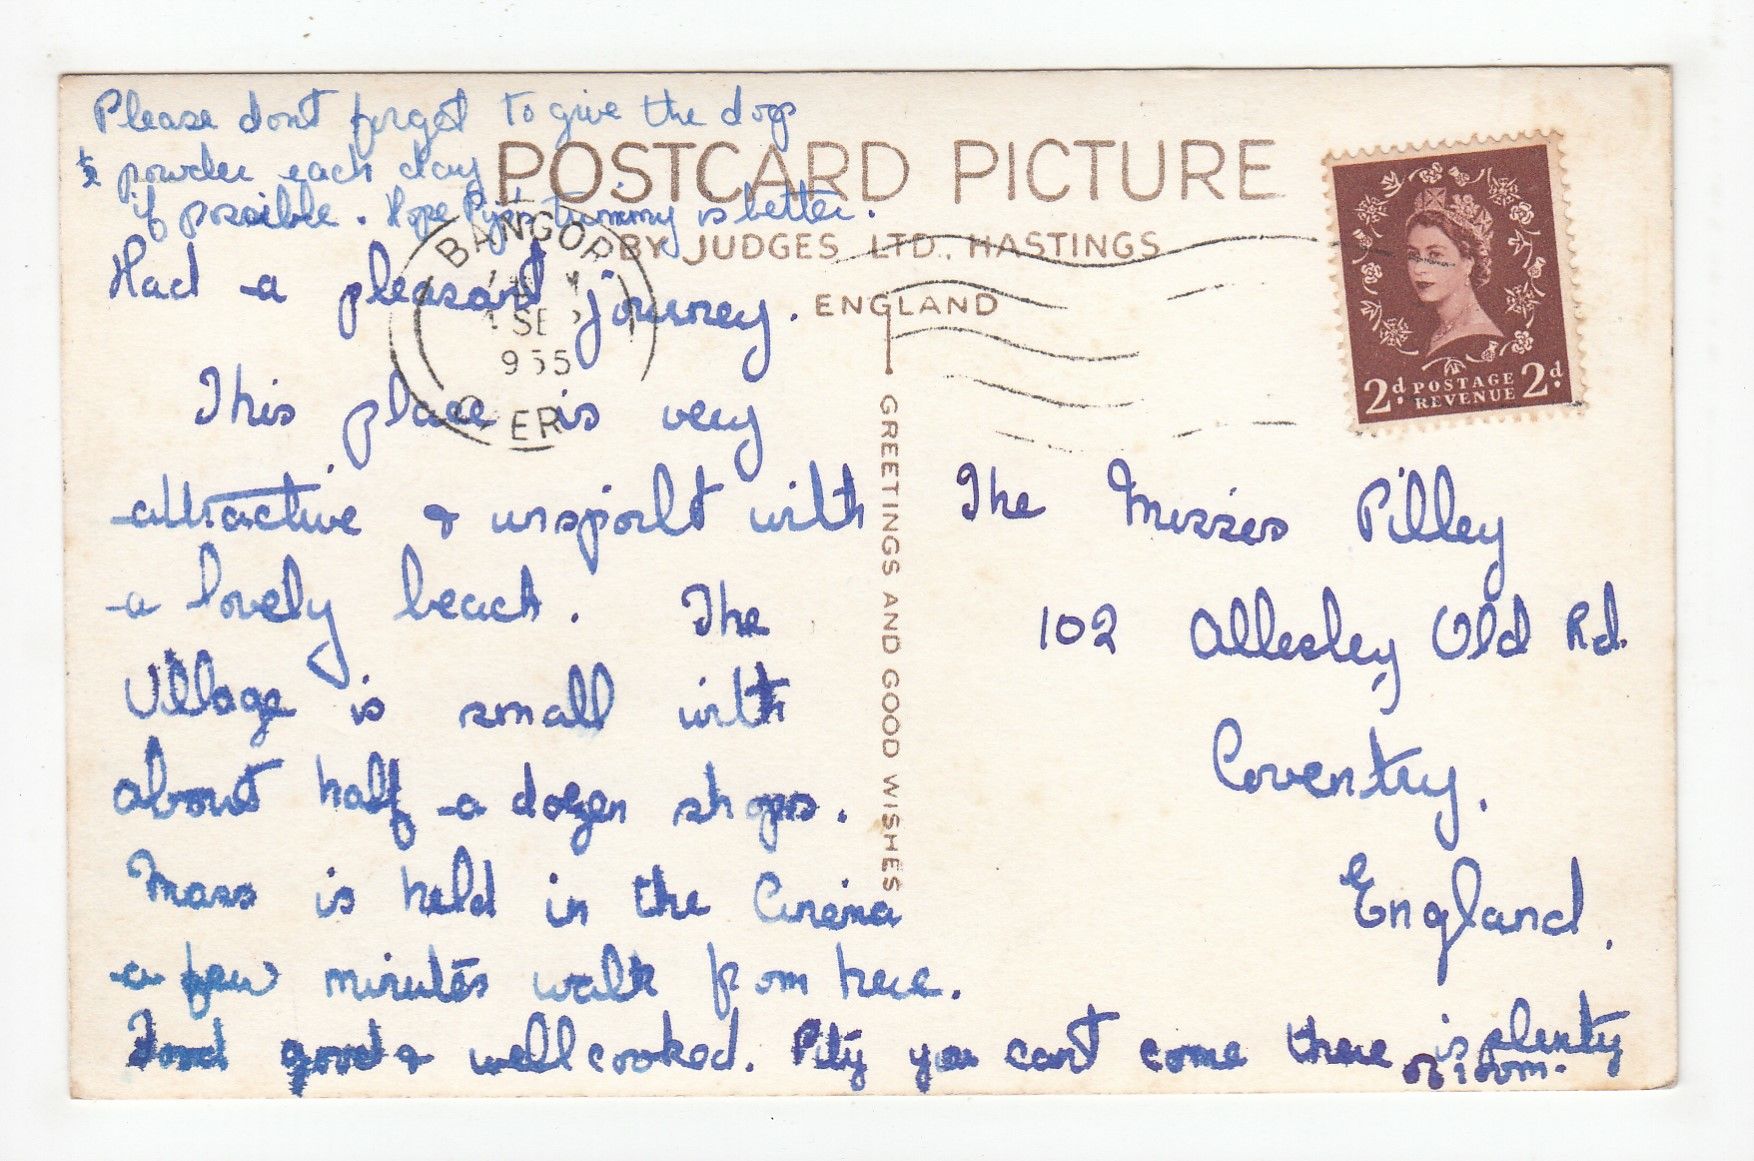 Please dont forget to give the dogs
½ powder each day
if possible. Hope tummy is better.
POSTCARD PICTURE
BY JUDGES LTD., HASTINGS
ENGLAND
BANGOR
SE
955
ER
2d POSTAGE REVENUE 2d
GREETINGS AND GOOD WISHES
Had a pleasant journey.
This place is very
attractive & unspoilt with
a lovely beach. The
Village is small with
about half a dozen shops.
Mass is held in the Cinema
a few minutes walk from here.
Food good & well cooked. Pity you cant come there is plenty
of room.
The Misses Pilley
102 Allesley Old Rd.
Coventry.
England.